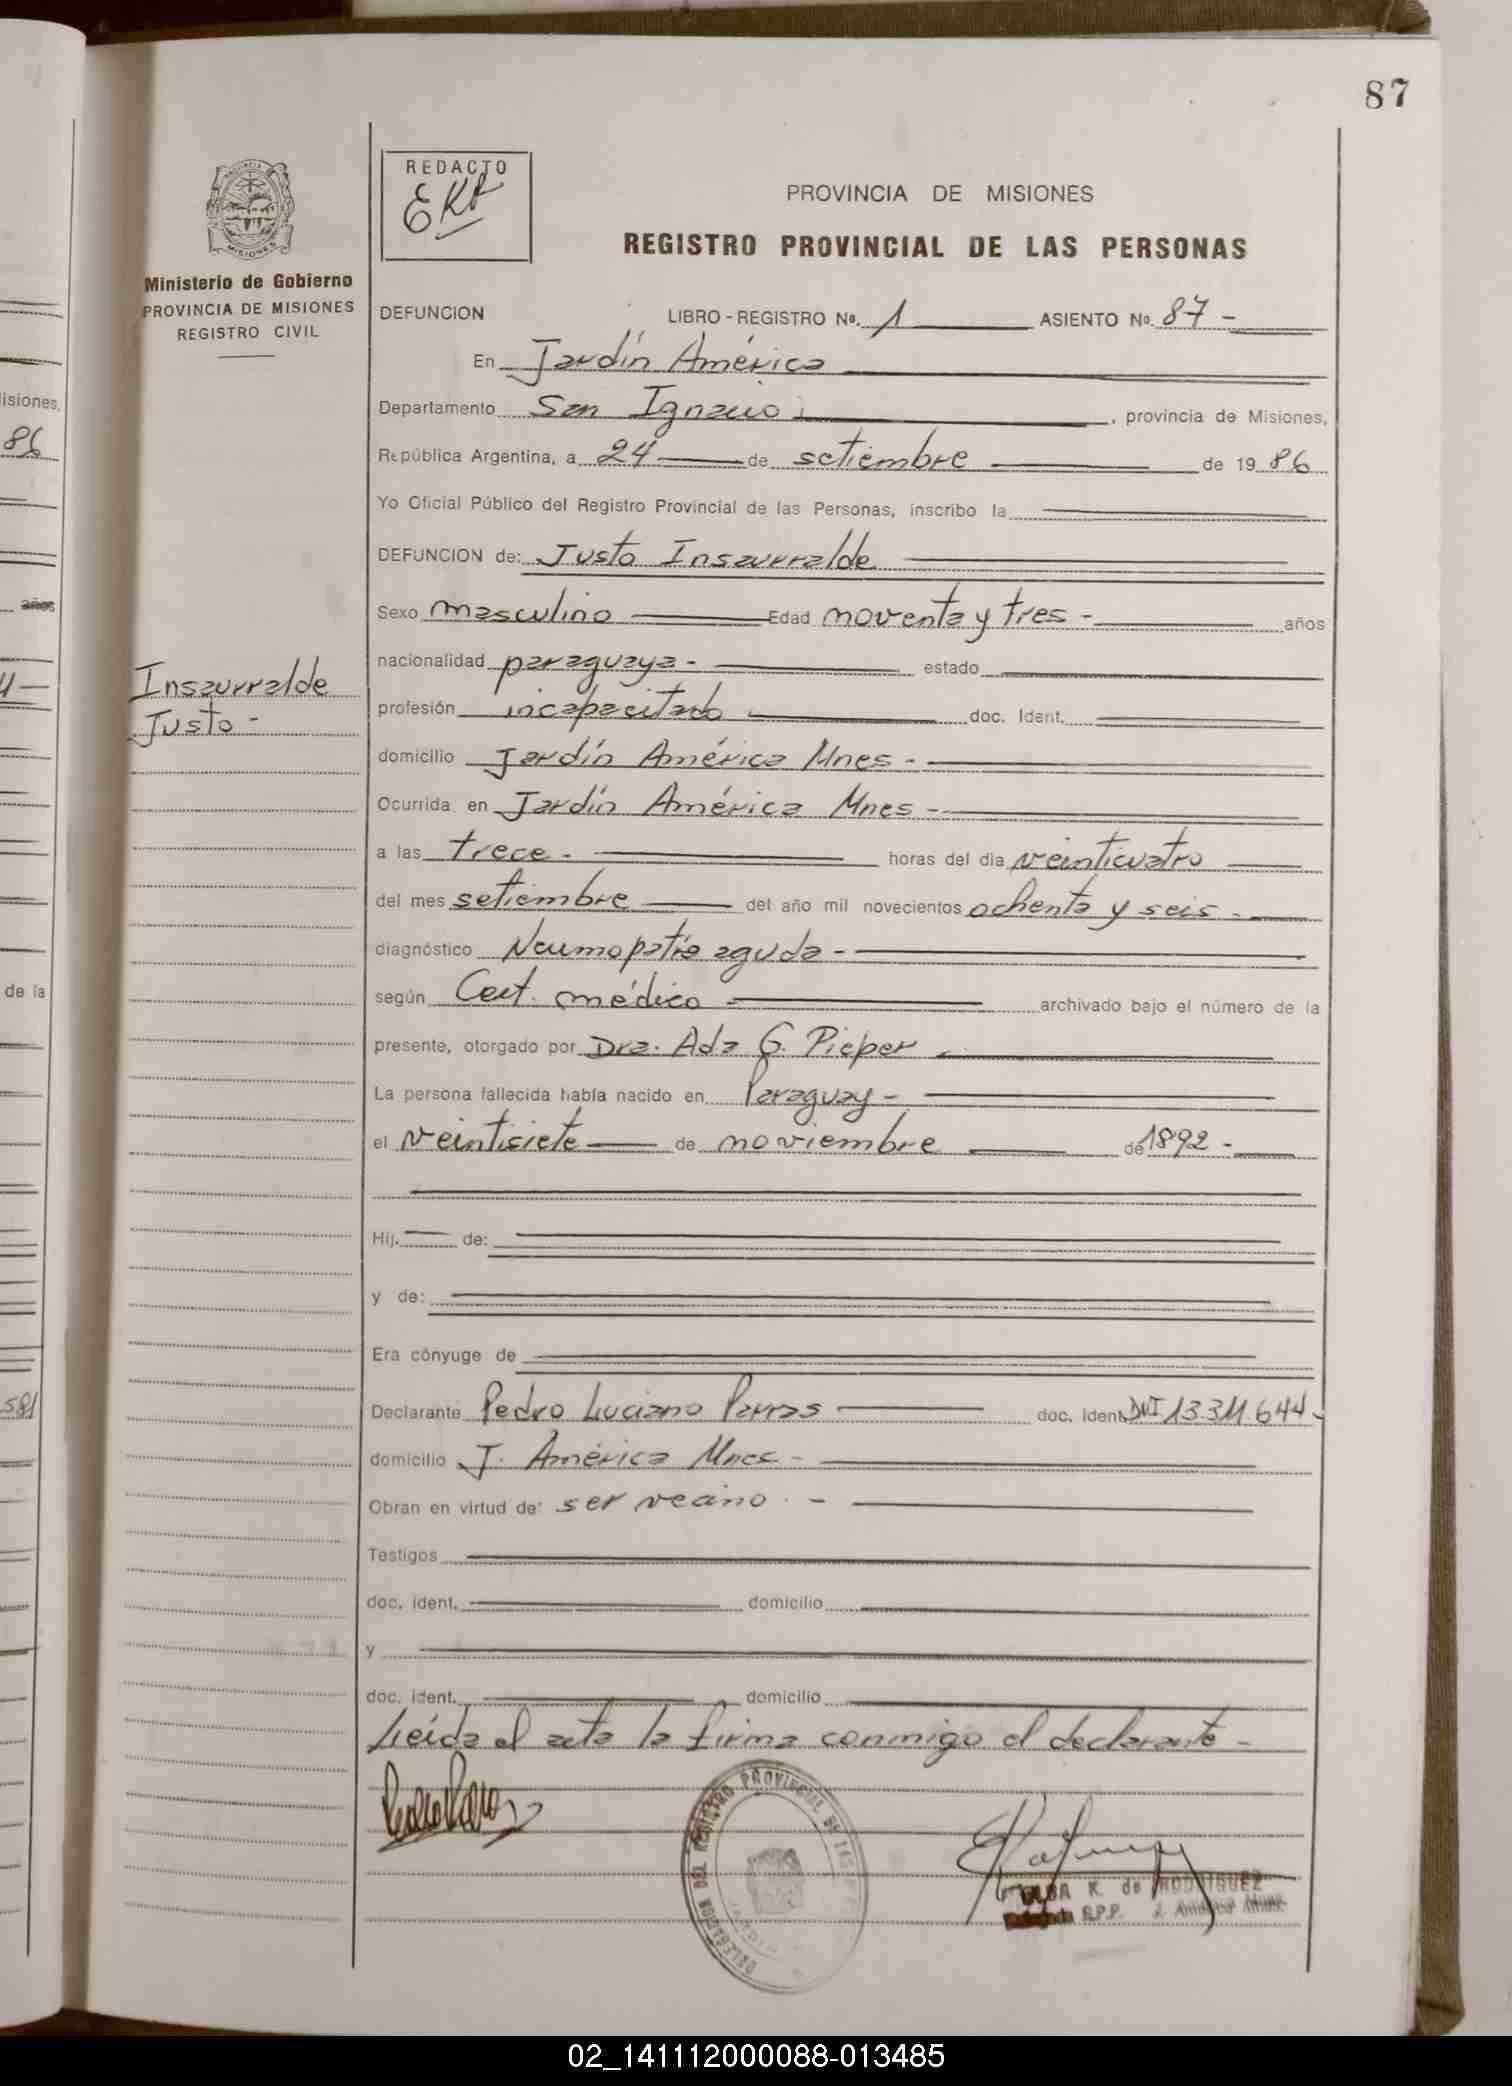 87
REDACTO
PROVINCIA DE MISIONES
REGISTRO PROVINCIAL DE LAS PERSONAS
MISIONES
Ministerio de Gobierno
PROVINCIA DE MISIONES
REGISTRO CIVIL
DEFUNCION LIBRO - REGISTRO Nº. 1 ASIENTO No. 87 -
En Jardín América
Departamento San Ignacio , provincia de Misiones,
República Argentina, a 24 de setiembre de 19 86
Yo Oficial Público del Registro Provincial de las Personas, inscribo la
DEFUNCION de: Justo Insaurralde
Sexo masculino Edad noventa y tres - años
nacionalidad paraguaya - estado
Insaurralde
Justo -
profesión incapacitado doc. Ident.
domicilio Jardín América Mnes -
Ocurrida en Jardín América Mnes -
a las trece - horas del día veinticuatro
del mes setiembre del año mil novecientos ochenta y seis -
diagnóstico Neumopatía aguda -
según Cert. médico - archivado bajo el número de la
presente, otorgado por Dra. Ada G. Pieper
La persona fallecida había nacido en Paraguay -
el veintisiete de noviembre de 1892 -
Hij. de:
y de:
Era cónyuge de
Declarante Pedro Luciano Parras doc. ident. DNI 13.311.644 -
domicilio J. América Mnes -
Obran en virtud de: ser vecino . -
Testigos
doc. ident. domicilio
y
doc. ident. domicilio
Leída el acta la firma conmigo el declarante -
DELEGACION DEL REGISTRO PROVINCIAL DE LAS
K. de RODRIGUEZ
R.P.P. J. América
isiones,
86
años
de la
581
02_141112000088-013485